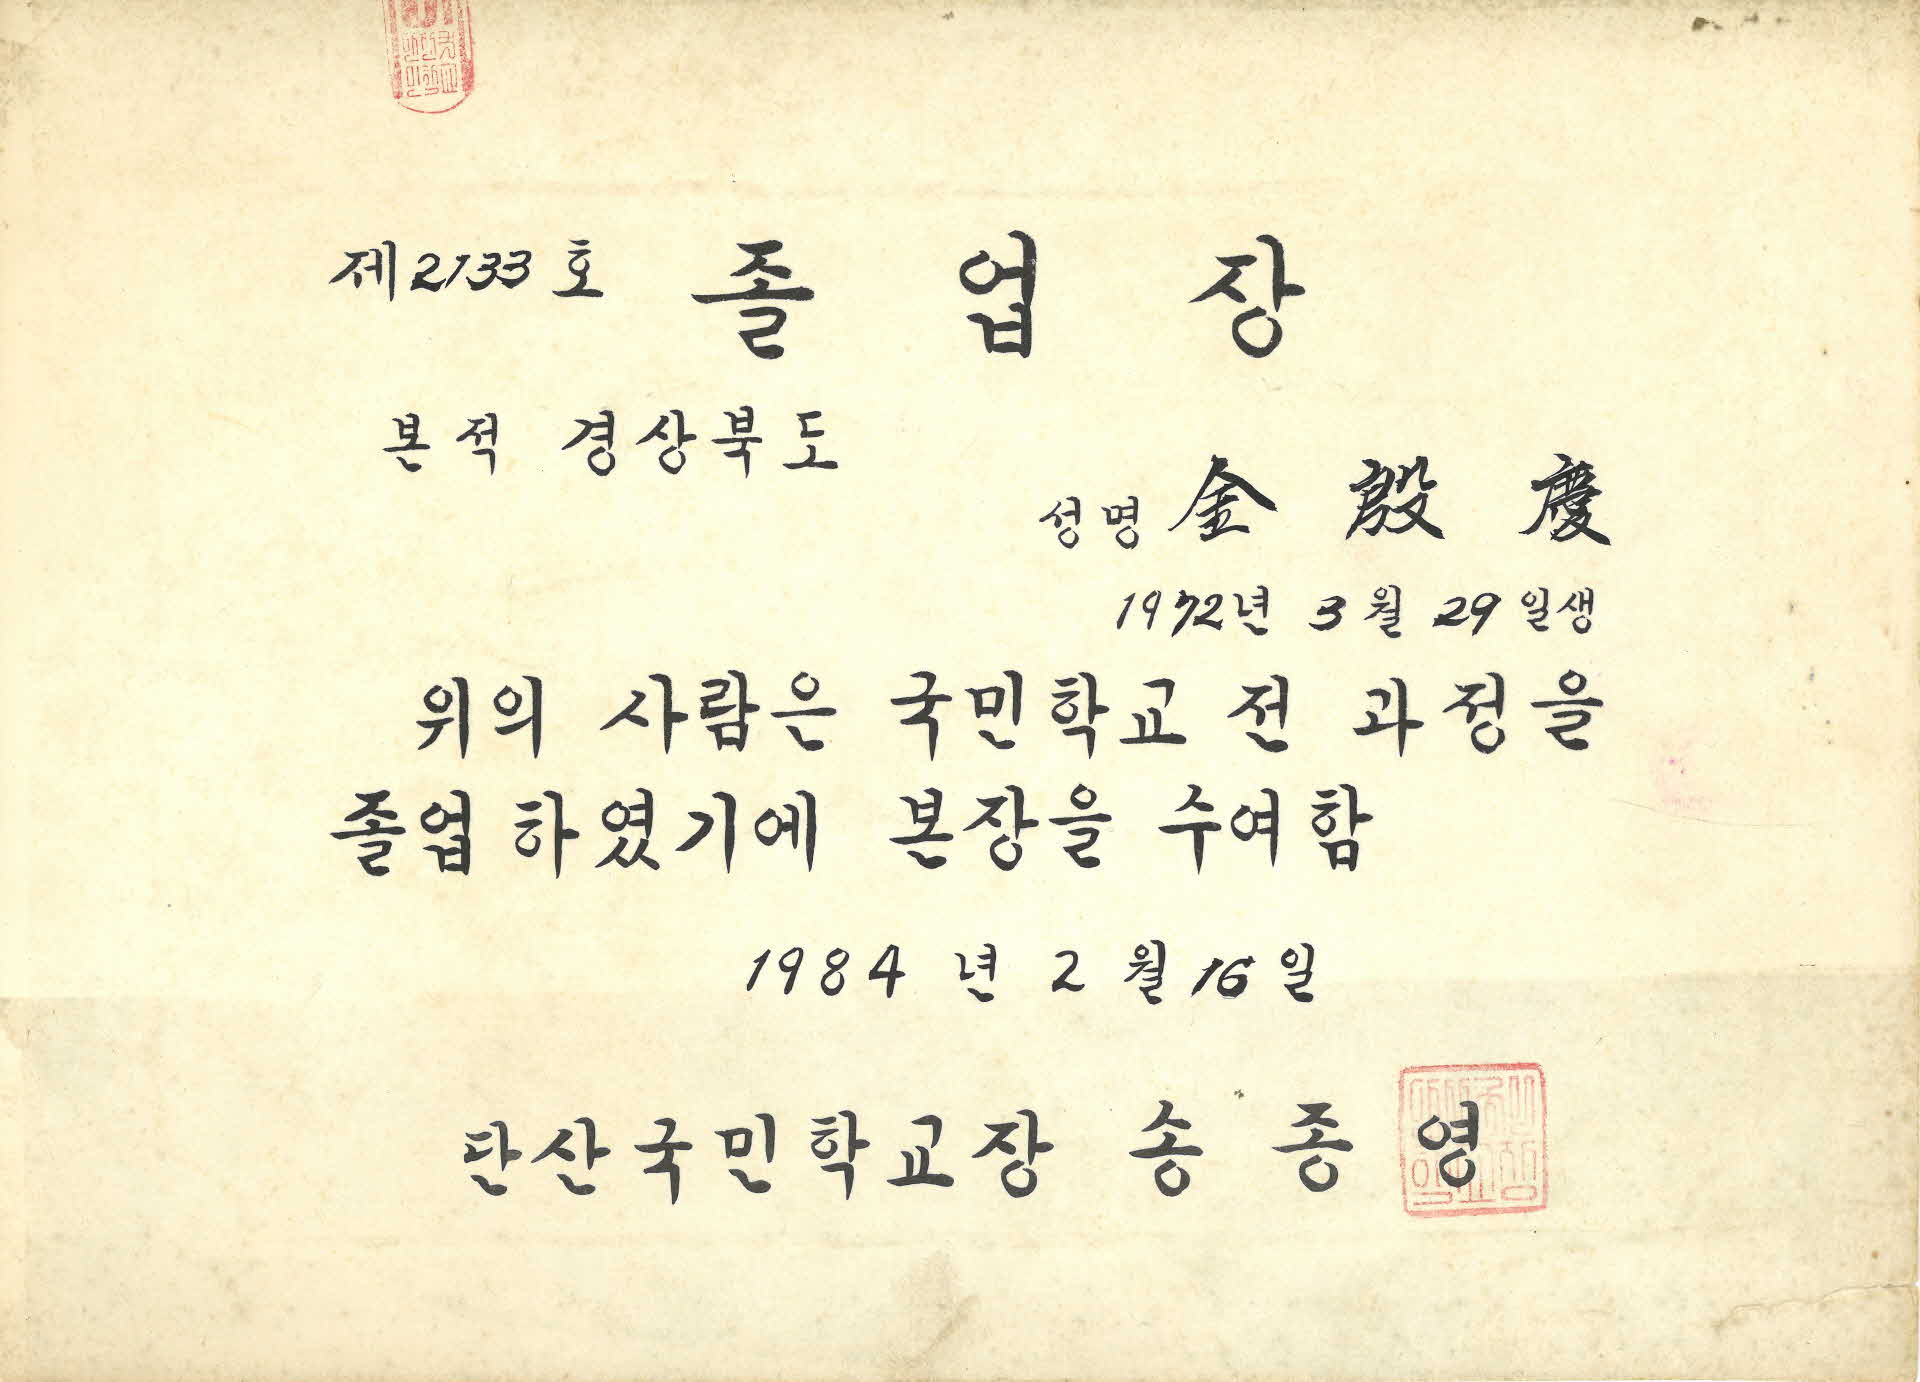 제2133호 졸업장
본적 경상북도
성명 金殷慶
1972년 3월 29일생
위의 사람은 국민학교 전 과정을
졸업하였기에 본장을 수여함
1984년 2월 16일
단산국민학교장 송종영